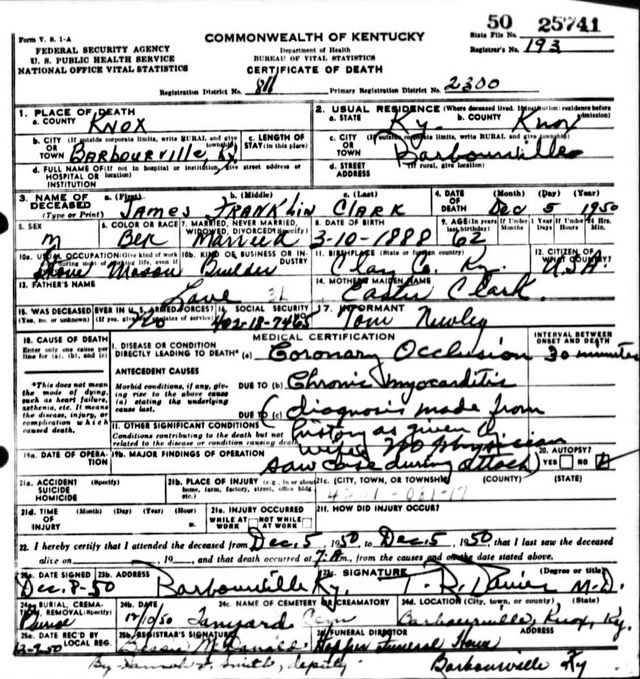 50 25741
Form V. S. 1-A
COMMONWEALTH OF KENTUCKY
State File No.
FEDERAL SECURITY AGENCY
Department of Health
Registrar's No. 193
U. S. PUBLIC HEALTH SERVICE
BUREAU OF VITAL STATISTICS
NATIONAL OFFICE VITAL STATISTICS
CERTIFICATE OF DEATH
Registration District No. 811 Primary Registration District No. 2300
1. PLACE OF DEATH
a. COUNTY KNOX
2. USUAL RESIDENCE (Where deceased lived. If institution: residence before admission)
a. STATE Ky. b. COUNTY Knox
b. CITY (If outside corporate limits, write RURAL and give township) OR TOWN BARBOURVILLE Ky
c. LENGTH OF STAY (in this place)
c. CITY (If outside corporate limits, write RURAL and give township) OR TOWN Barbourville
d. FULL NAME OF (If not in hospital or institution, give street address or location) HOSPITAL OR INSTITUTION
d. STREET ADDRESS (If rural, give location)
3. NAME OF DECEASED (Type or Print)
a. (First) JAMES b. (Middle) FRANKLIN c. (Last) CLARK
4. DATE OF DEATH (Month) (Day) (Year) Dec 5 1950
5. SEX M
6. COLOR OR RACE
7. MARRIED, NEVER MARRIED, WIDOWED, DIVORCED (Specify) Married
8. DATE OF BIRTH 3-10-1888
9. AGE (In years last birthday) 62
If Under 1 Year If Under 24 Hrs.
Months Days Hours Min.
10a. USUAL OCCUPATION (Give kind of work done during most of working life, even if retired) Stone Mason
10b. KIND OF BUSINESS OR INDUSTRY Builder
11. BIRTHPLACE (State or foreign country) Clay Co. Ky.
12. CITIZEN OF WHAT COUNTRY? U.S.A.
13. FATHER'S NAME
14. MOTHER'S MAIDEN NAME Easter Clark.
15. WAS DECEASED EVER IN U. S. ARMED FORCES? (Yes, no, or unknown) (If yes, give war or dates of service) no
16. SOCIAL SECURITY NO. 402-18-7465
17. INFORMANT Tom Newley
18. CAUSE OF DEATH
Enter only one cause per line for (a), (b), and (c)
MEDICAL CERTIFICATION
INTERVAL BETWEEN ONSET AND DEATH
I. DISEASE OR CONDITION DIRECTLY LEADING TO DEATH* (a) Coronary Occlusion 30 minutes
*This does not mean the mode of dying, such as heart failure, asthenia, etc. It means the disease, injury, or complication which caused death.
ANTECEDENT CAUSES
Morbid conditions, if any, giving rise to the above cause (a) stating the underlying cause last.
DUE TO (b) Chronic myocarditis
DUE TO (c) (diagnosis made from
II. OTHER SIGNIFICANT CONDITIONS
Conditions contributing to the death but not related to the disease or condition causing death.
history as given by
wife. No physician
saw case during attack)
19a. DATE OF OPERATION
19b. MAJOR FINDINGS OF OPERATION
20. AUTOPSY? YES NO
21a. ACCIDENT SUICIDE HOMICIDE (Specify)
21b. PLACE OF INJURY (e.g., in or about home, farm, factory, street, office bldg., etc.)
21c. (CITY, TOWN, OR TOWNSHIP) (COUNTY) (STATE)
21d. TIME OF INJURY (Month) (Day) (Year) (Hour) m.
21e. INJURY OCCURRED WHILE AT WORK NOT WHILE AT WORK
21f. HOW DID INJURY OCCUR?
22. I hereby certify that I attended the deceased from Dec. 5, 1950, to Dec. 5, 1950 that I last saw the deceased
alive on , 19 , and that death occurred at 7:A m., from the causes and on the date stated above.
23a. DATE SIGNED Dec. 8-50
23b. ADDRESS Barbourville Ky.
23c. SIGNATURE (Degree or title) T. R. Davies M.D.
24a. BURIAL, CREMATION, REMOVAL? (Specify)
24b. DATE 12/10/50
24c. NAME OF CEMETERY OR CREAMATORY Tanyard Cem
24d. LOCATION (City, town, or county) (State) Barbourville, Knox, Ky.
25a. DATE REC'D BY LOCAL REG. 12-9-50
25b. REGISTRAR'S SIGNATURE Bessie McDonald
26. FUNERAL DIRECTOR Hopper Funeral Home
ADDRESS Barbourville Ky
Smith, deputy